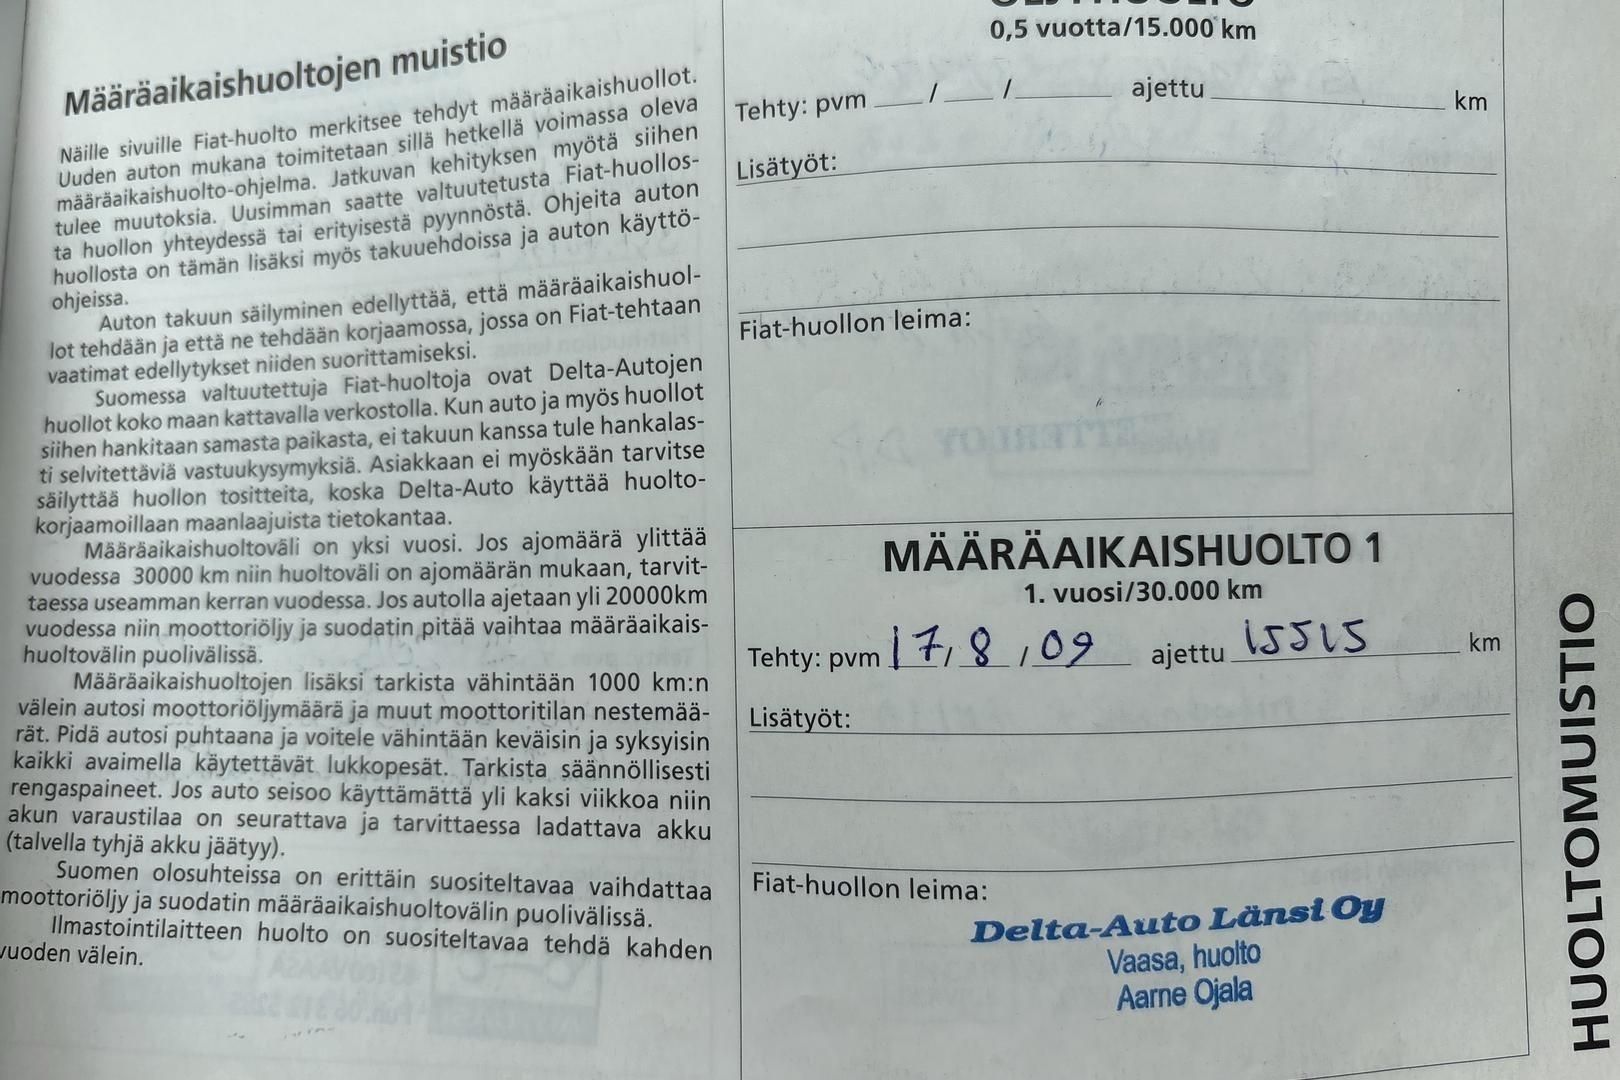 Määräaikaishuoltojen muistio
Näille sivuille Fiat-huolto merkitsee tehdyt määräaikaishuollot.
Uuden auton mukana toimitetaan sillä hetkellä voimassa oleva
määräaikaishuolto-ohjelma. Jatkuvan kehityksen myötä siihen
tulee muutoksia. Uusimman saatte valtuutetusta Fiat-huollos-
ta huollon yhteydessä tai erityisestä pyynnöstä. Ohjeita auton
huollosta on tämän lisäksi myös takuuehdoissa ja auton käyttö-
ohjeissa.
Auton takuun säilyminen edellyttää, että määräaikaishuol-
lot tehdään ja että ne tehdään korjaamossa, jossa on Fiat-tehtaan
vaatimat edellytykset niiden suorittamiseksi.
Suomessa valtuutettuja Fiat-huoltoja ovat Delta-Autojen
huollot koko maan kattavalla verkostolla. Kun auto ja myös huollot
siihen hankitaan samasta paikasta, ei takuun kanssa tule hankalas-
ti selvitettäviä vastuukysymyksiä. Asiakkaan ei myöskään tarvitse
säilyttää huollon tositteita, koska Delta-Auto käyttää huolto-
korjaamoillaan maanlaajuista tietokantaa.
Määräaikaishuoltoväli on yksi vuosi. Jos ajomäärä ylittää
vuodessa 30000 km niin huoltoväli on ajomäärän mukaan, tarvit-
taessa useamman kerran vuodessa. Jos autolla ajetaan yli 20000km
vuodessa niin moottoriöljy ja suodatin pitää vaihtaa määräaikais-
huoltovälin puolivälissä.
Määräaikaishuoltojen lisäksi tarkista vähintään 1000 km:n
välein autosi moottoriöljymäärä ja muut moottoritilan nestemää-
rät. Pidä autosi puhtaana ja voitele vähintään keväisin ja syksyisin
kaikki avaimella käytettävät lukkopesät. Tarkista säännöllisesti
rengaspaineet. Jos auto seisoo käyttämättä yli kaksi viikkoa niin
akun varaustilaa on seurattava ja tarvittaessa ladattava akku
(talvella tyhjä akku jäätyy).
Suomen olosuhteissa on erittäin suositeltavaa vaihdattaa
moottoriöljy ja suodatin määräaikaishuoltovälin puolivälissä.
Ilmastointilaitteen huolto on suositeltavaa tehdä kahden
vuoden välein.
0,5 vuotta/15.000 km
Tehty: pvm / / ajettu km
Lisätyöt:
Fiat-huollon leima:
MÄÄRÄAIKAISHUOLTO 1
1. vuosi/30.000 km
Tehty: pvm 17/8/09 ajettu 15515 km
Lisätyöt:
Fiat-huollon leima:
Delta-Auto Länsi Oy
Vaasa, huolto
Aarne Ojala
HUOLTOMUISTIO